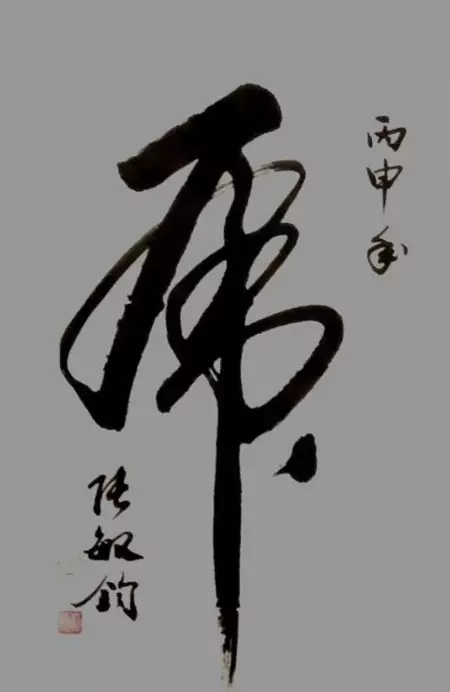 丙申年
虎
张敏钧